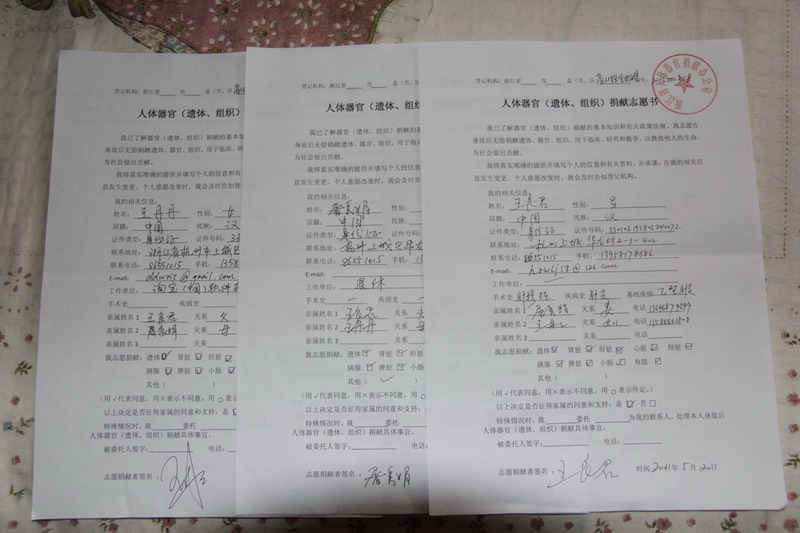 登记机构：浙江省____市____县（市、区
人体器官（遗体、组织）捐
我已了解器官（遗体、组织）捐献的基本知
身故后无偿捐献遗体、器官、组织，用于临床、
为社会做出贡献。
我将真实准确的提供并填写个人的信息和
息发生变更、个人意愿改变时，我会及时告知
我的相关信息：
姓名：王丹丹 性别：女
国籍：中国 民族：汉
证件类型：身份证 证件号码：33
联系地址：浙江省杭州市上城区
联系电话：86551015 手机：1358
E-mail:
工作单位：淘宝（中国）软件
手术史 疾病史
亲属姓名1 王良君 关系 父
亲属姓名2 屠富娟 关系 母
亲属姓名3 关系
我志愿捐献：遗体☑ 肾脏☑ 肝脏
胰腺☑ 脾脏☑ 小肠
其他（
（用√代表同意，用×表示不同意，用
以上决定是否征得家属的同意和支持：是
特殊情况时，我____委托
人体器官（遗体、组织）捐献具体事宜。
被委托人签字：____电话：
志愿捐献者签名：
登记机构：浙江省____市____县（市、
人体器官（遗体、组织）
我已了解器官（遗体、组织）捐献的基本
身故后无偿捐献遗体、器官、组织，用于临床
为社会做出贡献。
我将真实准确的提供并填写个人的信息
息发生变更、个人意愿改变时，我会及时告
我的相关信息：
姓名：屠富娟 性别：
国籍：中国 民族：
证件类型：身份证 证件号码：
联系地址：杭州上城区华
联系电话：86551015 手机：
E-mail:
工作单位：退休
手术史 — 疾病史 —
亲属姓名1 王良君 关系
亲属姓名2 王丹丹 关系
亲属姓名3 关系
我志愿捐献：遗体☑ 肾脏☑ 肝脏
胰腺☑ 脾脏☑ 小肠
其他（ √
（用√代表同意，用×表示不同意，用
以上决定是否征得家属的同意和支持：
特殊情况时，我____委托
人体器官（遗体、组织）捐献具体事宜。
被委托人签字：____电话
志愿捐献者签名：屠富娟
登记机构：浙江省____市____县（市、区
人体器官（遗体、组织）捐献志愿书
我已了解器官（遗体、组织）捐献的基本知识和有关政策法规。我志愿在
身故后无偿捐献遗体、器官、组织，用于临床、研究和教学，以挽救他人的生命，
为社会做出贡献。
我将真实准确的提供并填写个人的信息和有关资料，并承诺：在我的相关信
息发生变更、个人意愿改变时，我会及时告知登记机构。
我的相关信息：
姓名：王良君 性别：男
国籍：中国 民族：汉
证件类型：身份证 证件号码：
联系地址：杭州上城华
联系电话：86551015 手机：13958178586
E-mail:
工作单位：
手术史 疾病史 基础疾病：乙型肝
亲属姓名1 屠富娟 关系 妻 电话
亲属姓名2 王丹丹 关系 女儿 电话
亲属姓名3 关系 电话
我志愿捐献：遗体☑ 肾脏☑ 肝脏☑ 心脏☑ 肺脏☑
胰腺☑ 脾脏☑ 小肠☑ 角膜☑
其他（ ）
（用√代表同意，用×表示不同意，用○表示待定。）
以上决定是否征得家属的同意和支持：是☑ 否□
特殊情况时，我____委托____为我的联系人，处理本人身故后
人体器官（遗体、组织）捐献具体事宜。
被委托人签字：____电话：
志愿捐献者签名：王良君 时间2011年5月20日